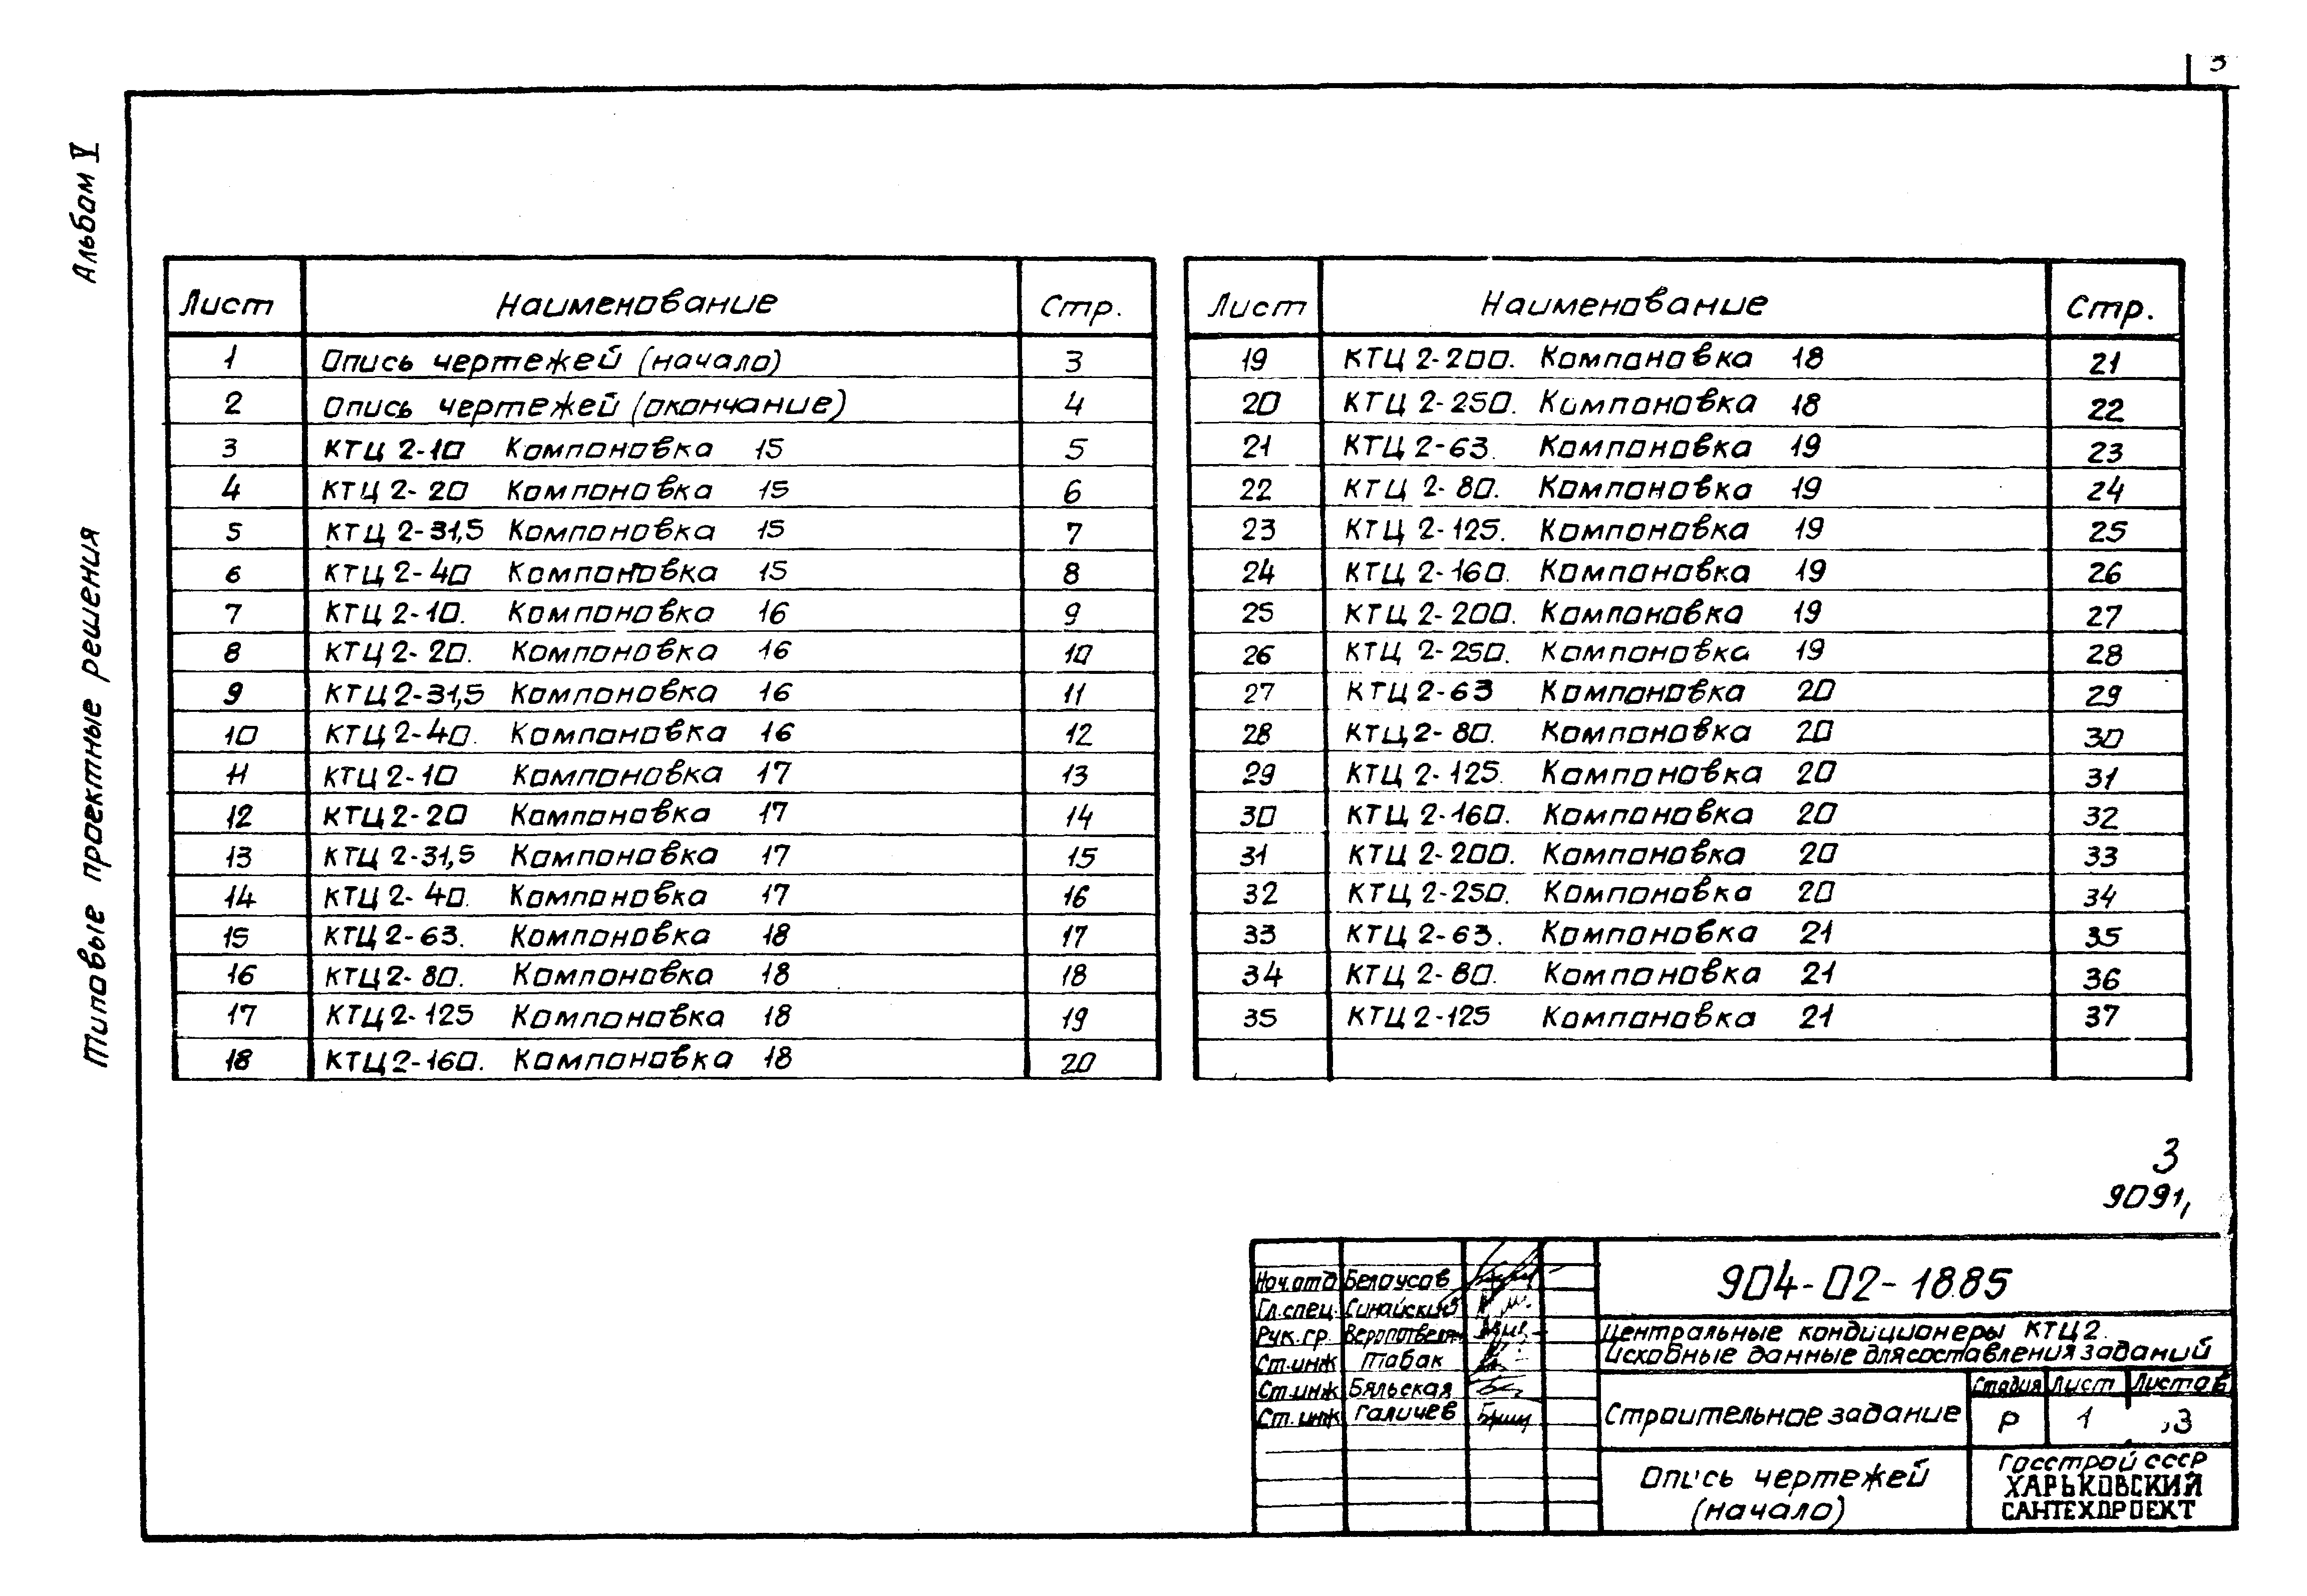 3
Альбом V
Типовые проектные решения
Лист Наименование Стр.
1 Опись чертежей (начало) 3
2 Опись чертежей (окончание) 4
3 КТЦ 2-10 Компоновка 15 5
4 КТЦ 2-20 Компоновка 15 6
5 КТЦ 2-31,5 Компоновка 15 7
6 КТЦ 2-40 Компоновка 15 8
7 КТЦ 2-10. Компоновка 16 9
8 КТЦ 2-20. Компоновка 16 10
9 КТЦ 2-31,5 Компоновка 16 11
10 КТЦ 2-40. Компоновка 16 12
11 КТЦ 2-10 Компоновка 17 13
12 КТЦ 2-20 Компоновка 17 14
13 КТЦ 2-31,5 Компоновка 17 15
14 КТЦ 2-40. Компоновка 17 16
15 КТЦ 2-63. Компоновка 18 17
16 КТЦ 2-80. Компоновка 18 18
17 КТЦ 2-125 Компоновка 18 19
18 КТЦ 2-160. Компоновка 18 20
Лист Наименование Стр.
19 КТЦ 2-200. Компоновка 18 21
20 КТЦ 2-250. Компоновка 18 22
21 КТЦ 2-63. Компоновка 19 23
22 КТЦ 2-80. Компоновка 19 24
23 КТЦ 2-125. Компоновка 19 25
24 КТЦ 2-160. Компоновка 19 26
25 КТЦ 2-200. Компоновка 19 27
26 КТЦ 2-250. Компоновка 19 28
27 КТЦ 2-63 Компоновка 20 29
28 КТЦ 2-80. Компоновка 20 30
29 КТЦ 2-125. Компоновка 20 31
30 КТЦ 2-160. Компоновка 20 32
31 КТЦ 2-200. Компоновка 20 33
32 КТЦ 2-250. Компоновка 20 34
33 КТЦ 2-63. Компоновка 21 35
34 КТЦ 2-80. Компоновка 21 36
35 КТЦ 2-125 Компоновка 21 37
3
9091,
Нач.отд Белоусов
Гл.спец. Синайский
Рук.гр.
Ст.инж Табак
Ст.инж Бяльская
Ст.инж Галичев
904-02-18.85
Центральные кондиционеры КТЦ2.
Исходные данные для составления заданий
Строительное задание
Стадия Лист Листов
Р 1 3
Опись чертежей
(начало)
Госстрой СССР
ХАРЬКОВСКИЙ
САНТЕХПРОЕКТ